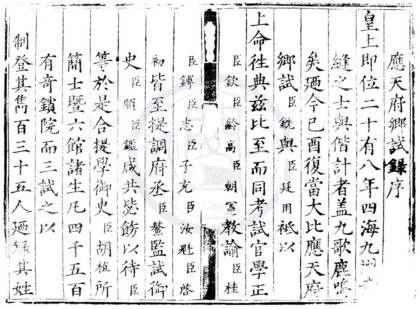 應天府鄉試錄序
皇上即位二十有八年四海九
縫之士與偕計者盖九歌鹿鳴
矣廼今己酉復當大比應天府
鄉試臣銑與臣廷用祗以
上命徃典兹比至而同考試官學正
臣欽臣齡高臣朝冕教諭臣桂
臣鏄臣志臣子充臣汝魁臣啓
初皆至提調府丞臣鰲監試御
史臣順臣鑑咸共毖飭以待臣
等於是合提學御史臣胡植所
簡士暨六館諸生凡四千五百
有奇鎖院而三試之以
制登其雋百三十五人廼錄其姓